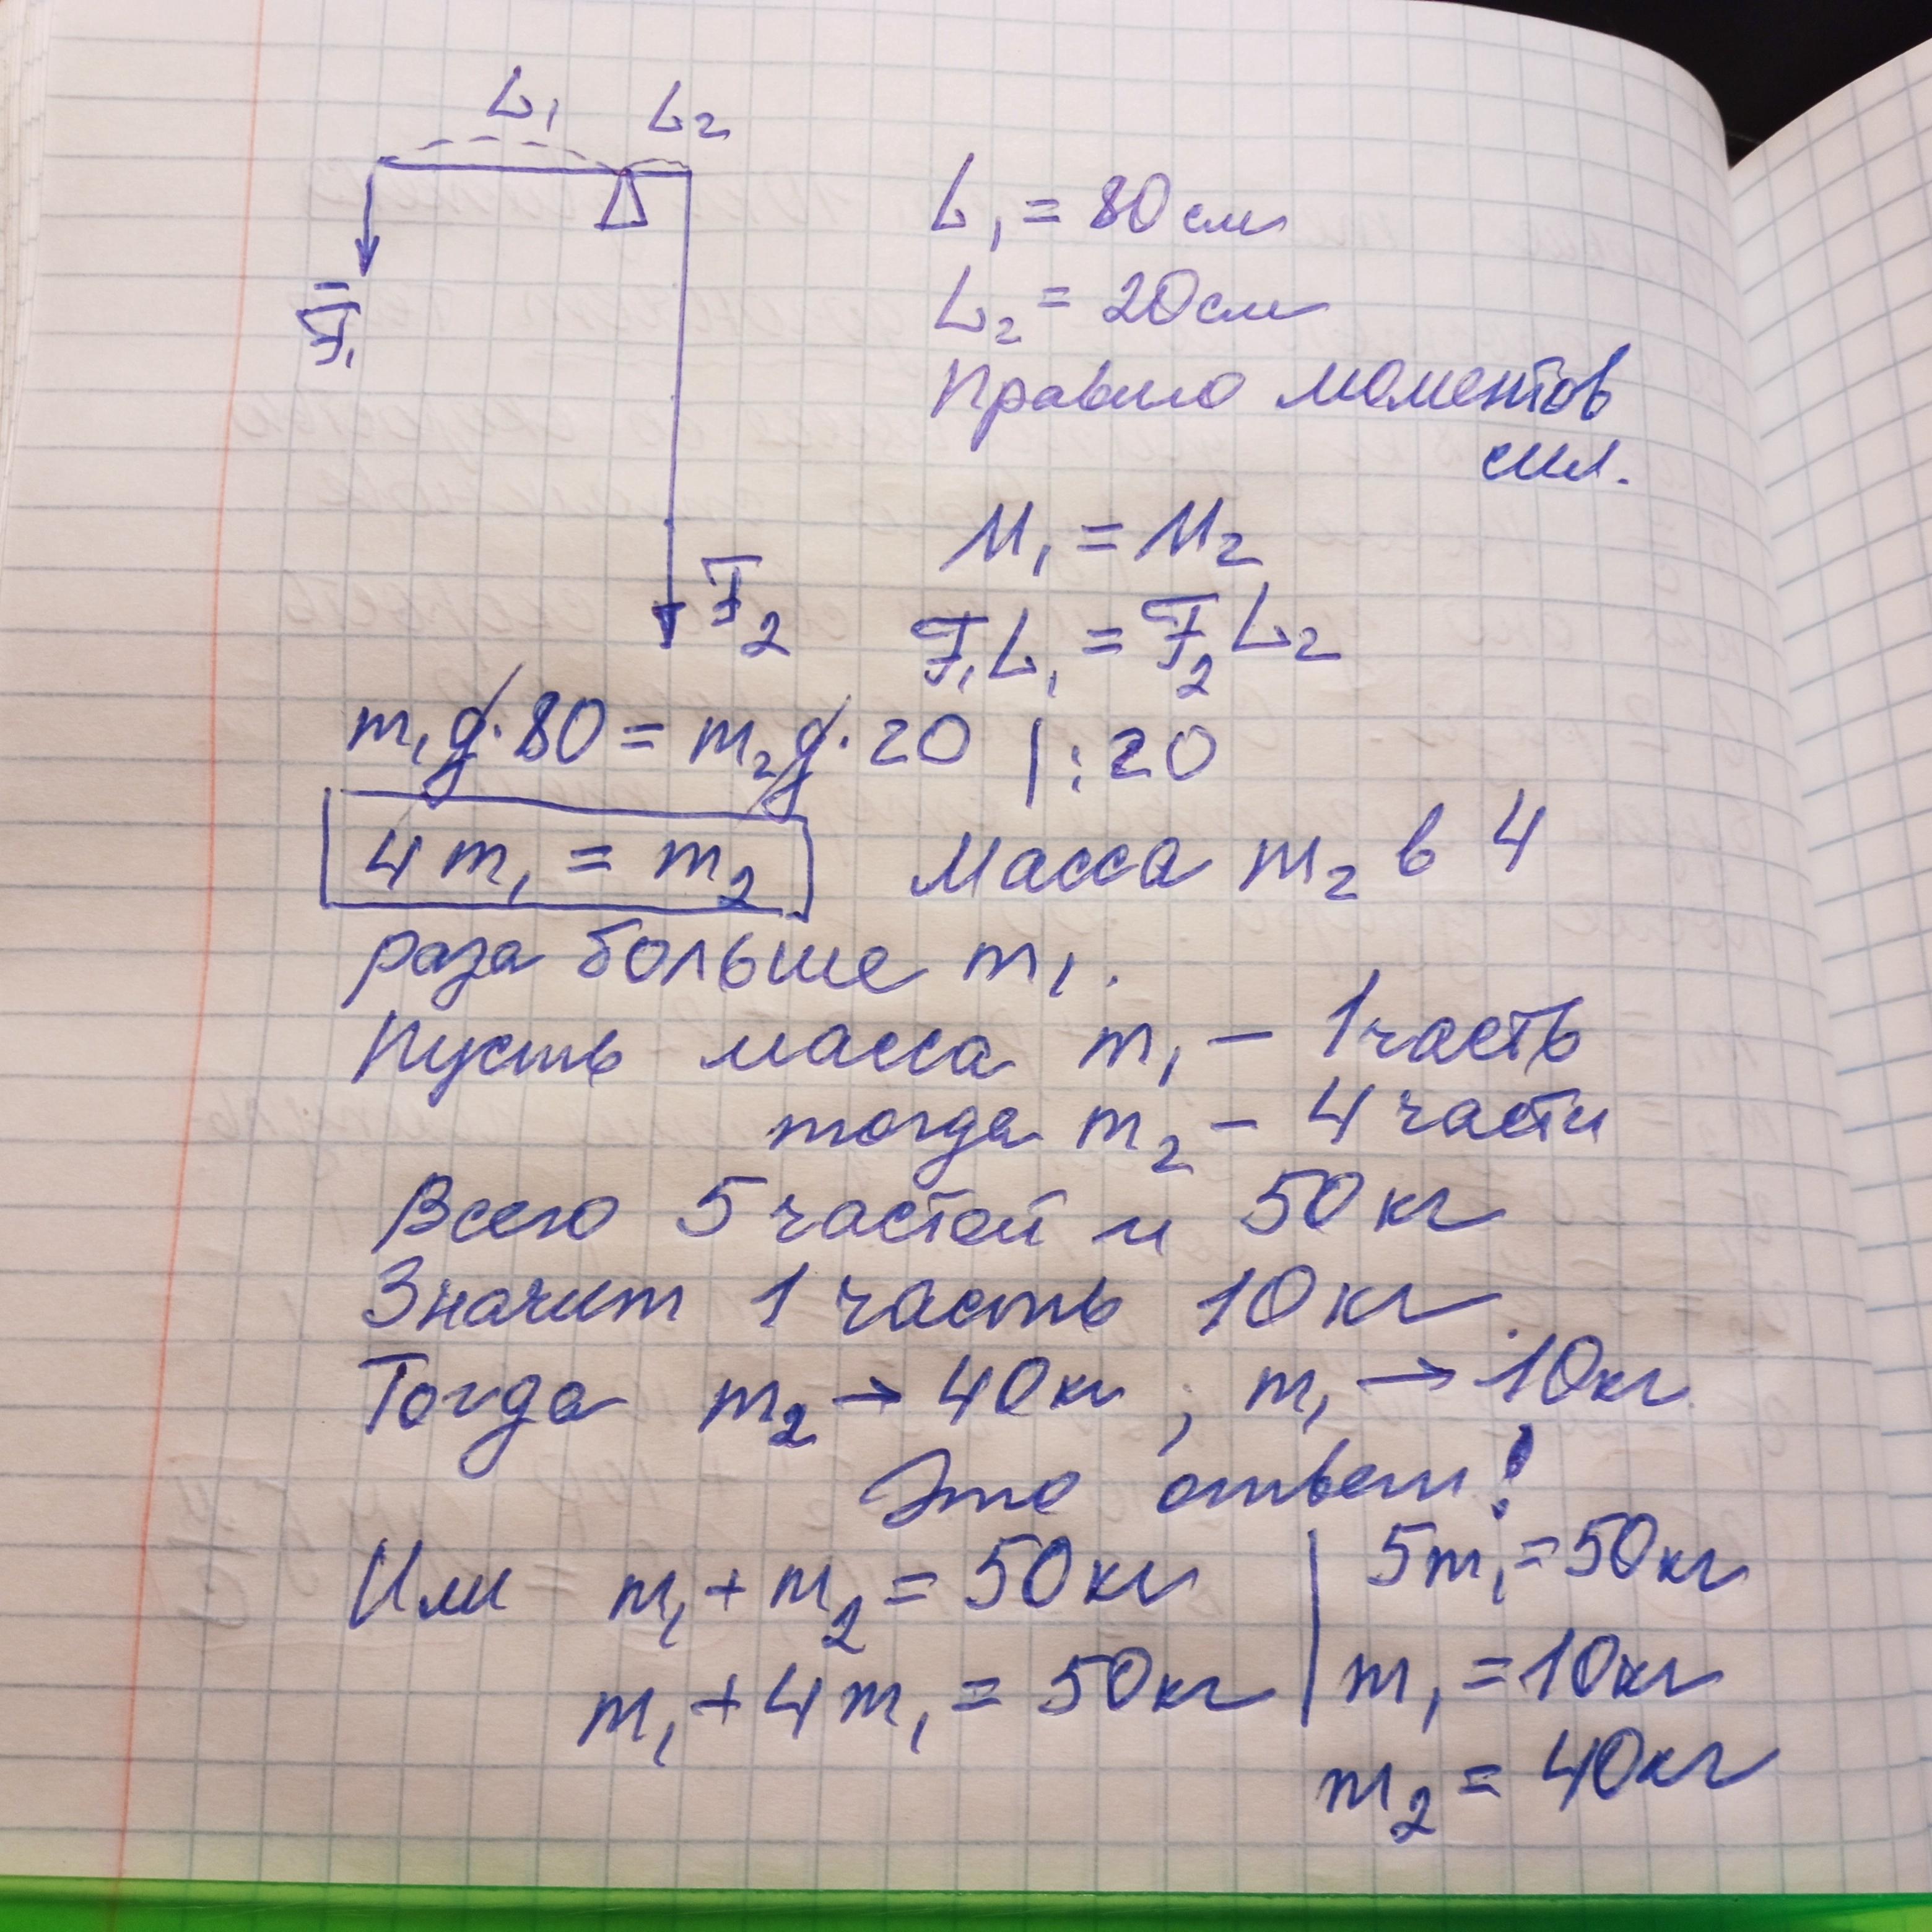 L₁ L₂
L₁ = 80 см
L₂ = 20 см
F₁
Правило моментов
сил.
M₁ = M₂
F₂
F₁L₁ = F₂L₂
m₁g·80 = m₂g·20 |:20
4m₁ = m₂ Масса m₂ в 4
раза больше m₁.
Пусть масса m₁ – 1 часть
тогда m₂ – 4 части
Всего 5 частей и 50 кг
Значит 1 часть 10 кг.
Тогда m₂ → 40 кг ; m₁ → 10 кг
Это ответ!
Или m₁ + m₂ = 50 кг | 5m₁ = 50 кг
m₁ + 4m₁ = 50 кг | m₁ = 10 кг
m₂ = 40 кг